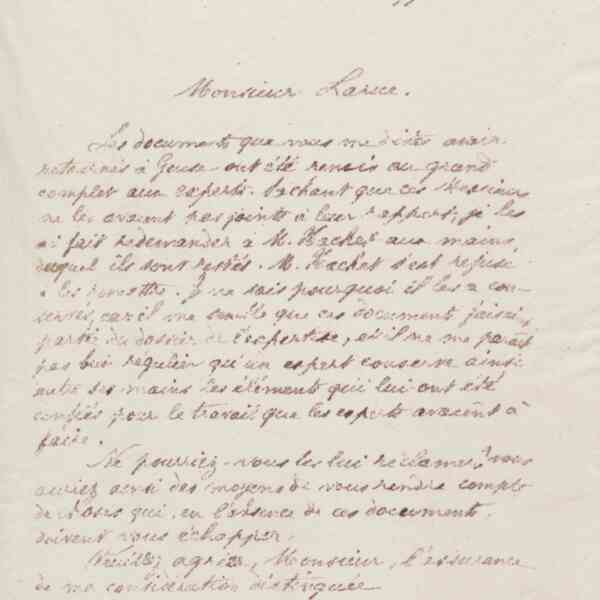 Monsieur Larue.
Les documents que vous me dites avoir
retournés à Geuse ont été remis au grand
complet aux experts. Sachant que ces Messieurs
ne les avaient pas joints à leur rapport, je les
ai fait redemander à M. Hachet aux mains
duquel ils sont restés. M. Hachet s'est refusé
à les remettre. Je ne sais pourquoi il les a con-
servés, car il me semble que ces documents faisaient
partie du dossier de l'expertise, et il ne me parait
pas bien régulier qu'un expert conserve ainsi
entre ses mains les éléments qui lui ont été
confiés pour le travail que les experts avaient à
faire.
Ne pourriez-vous les lui réclamer? vous
auriez ainsi des moyens de vous rendre compte
de choses qui, en l'absence de ces documents,
doivent vous échapper.
Veuillez agréer, Monsieur, l'assurance
de ma considération distinguée